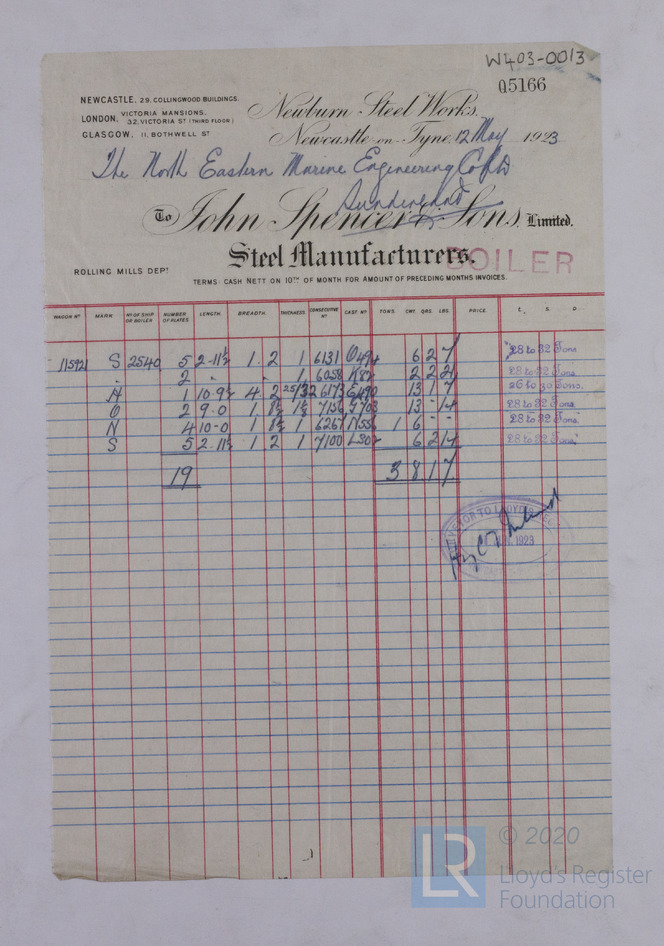 W403-0013
Q5166
NEWCASTLE, 29. COLLINGWOOD BUILDINGS.
LONDON, VICTORIA MANSIONS, 32, VICTORIA ST (THIRD FLOOR)
GLASGOW, 11. BOTHWELL ST
Newburn Steel Works,
Newcastle-on-Tyne, 12 May 1923
The North Eastern Marine Engineering Co Ld
Sunderland
To John Spencer & Sons, Limited.
Steel Manufacturers.
BOILER
ROLLING MILLS DEPT
TERMS: CASH NETT ON 10TH OF MONTH FOR AMOUNT OF PRECEDING MONTHS INVOICES.
WAGON No MARK No OF SHIP OR BOILER NUMBER OF PLATES LENGTH. BREADTH. THICKNESS CONSECUTIVE No CAST No TONS. CWT. QRS. LBS. PRICE. £. S. D.
115921 S 2540 5 2-11½ 1.2 1 6131 6 2 7 28 to 32 Tons
2 1 6058 2 2 21 28 to 32 Tons
A 1 10-9½ 4 2 25/32 6173 13 1 7 26 to 30 Tons.
O 2 9-0 7156 13 - 14 28 to 32 Tons
N 4 10-0 1 6267 1 6 - - 28 to 32 Tons
S 5 2.11½ 1 2 1 7100 6 2 14 28 to 32 Tons
19 3 8 1 7
SURVEYOR TO LLOYD'S
1923
LR
© 2020
Lloyd's Register
Foundation